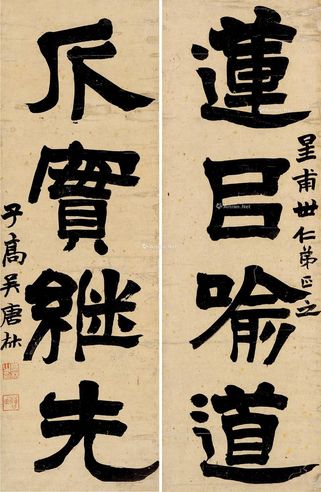 蓮㠯喻道
星甫世仁弟正之
瓜實繼先
子高吳唐林